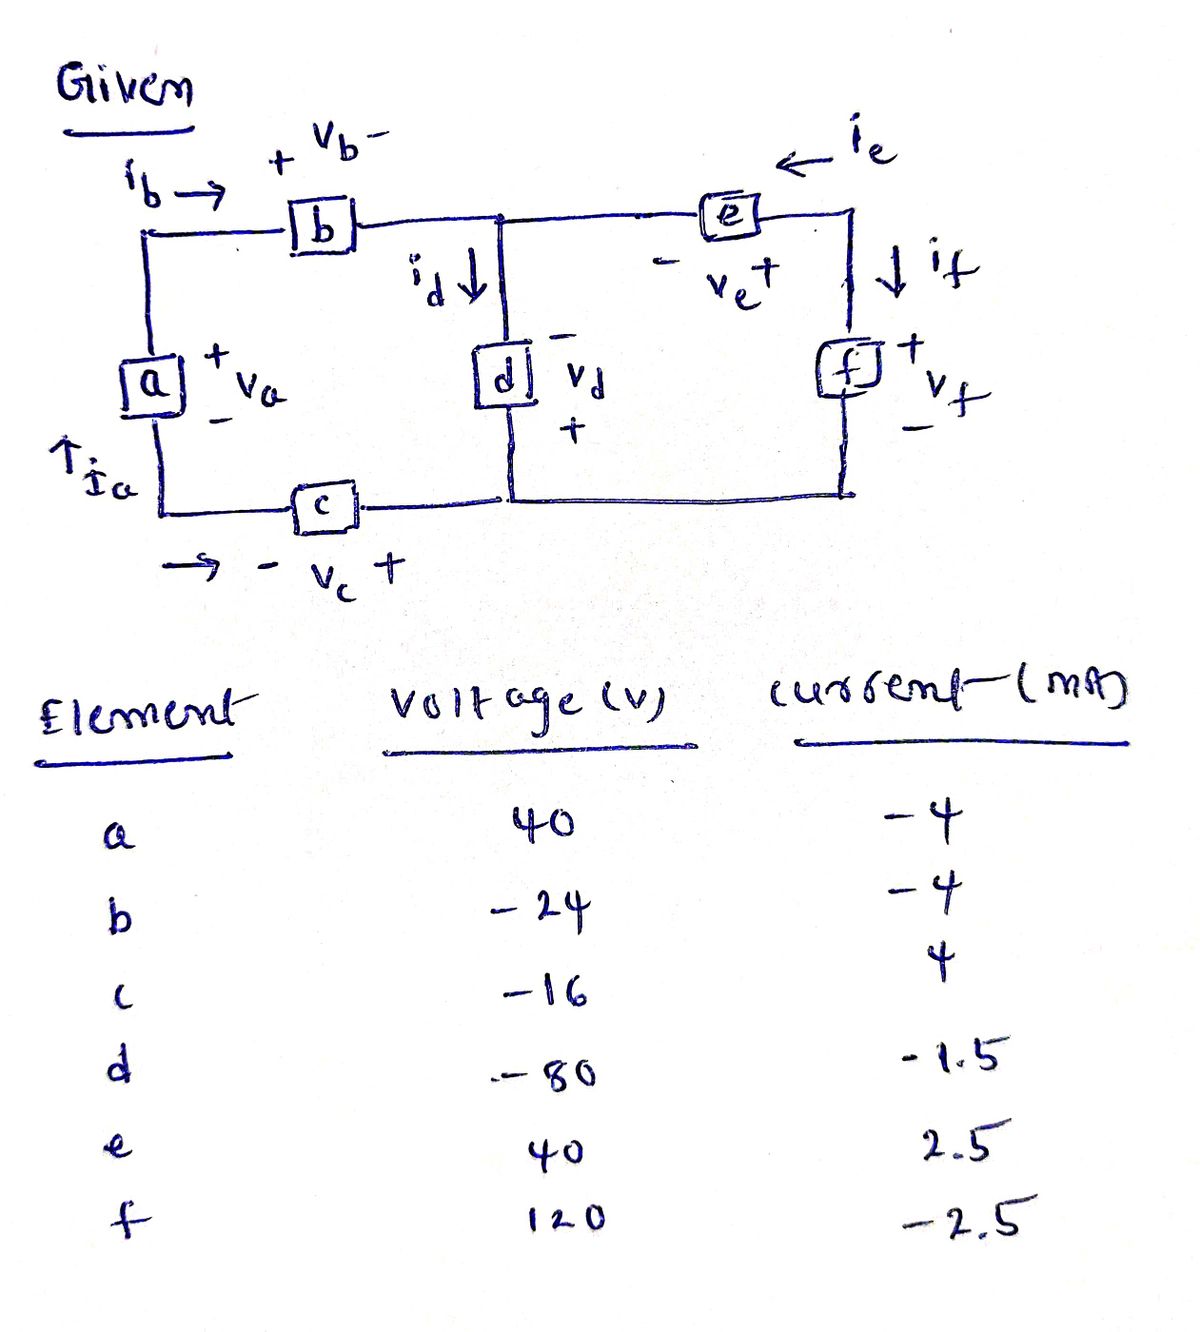 Given
+ Vb -
ib →
← ie
b
e
id ↓
- ve +
↓ if
a
+ va -
d
- vd +
f
+ vf -
↑ ia
c
→ - vc +
Element voltage (v) current (mA)
a 40 -4
b -24 -4
c -16 4
d -80 -1.5
e 40 2.5
f 120 -2.5